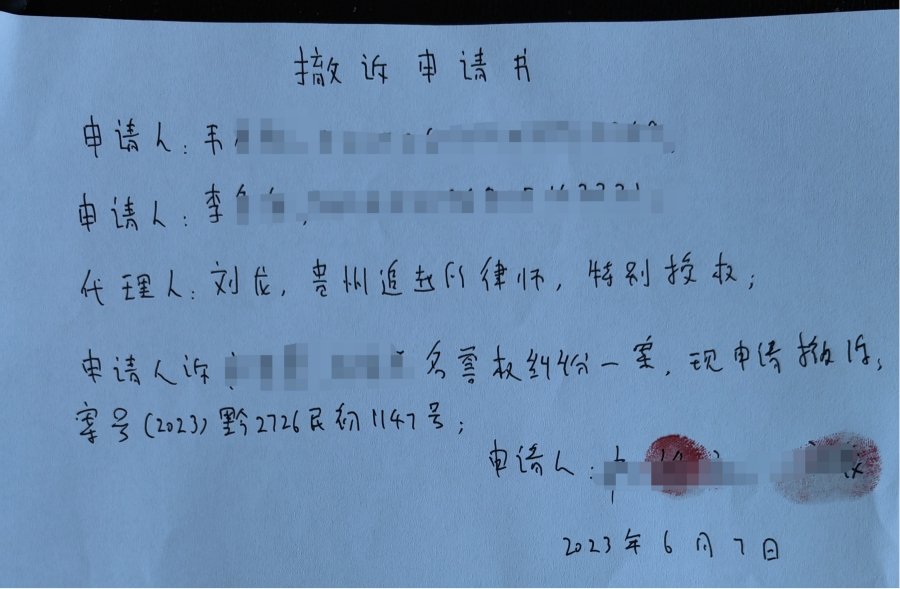 撤诉申请书
申请人：韦
申请人：李
代理人：刘龙，贵州追越所律师，特别授权；
申请人诉 名誉权纠纷一案，现申请撤诉；
案号(2023)黔2726民初1147号；
申请人：
2023年6月7日